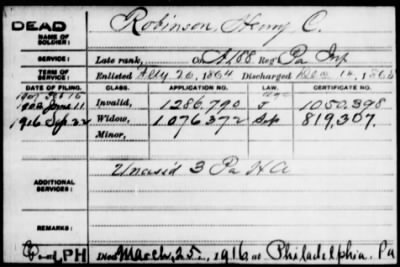 DEAD
NAME OF SOLDIER: Robinson, Henry C.
SERVICE: Late rank, Co. A, 188 Reg't Pa Inf
TERM OF SERVICE: Enlisted 26, 1864 Discharged Dec 14, 1865
DATE OF FILING. CLASS. APPLICATION NO. LAW. CERTIFICATE NO.
16
June 11 Invalid, 1286.790 1050.398
1916 Sep. 22 Widow, 1076372 Sep 819,307.
Minor,
ADDITIONAL SERVICES: Unas'd 3 Pa H A
REMARKS:
PH Died March, 25, 1916, at Philadelphia. Pa